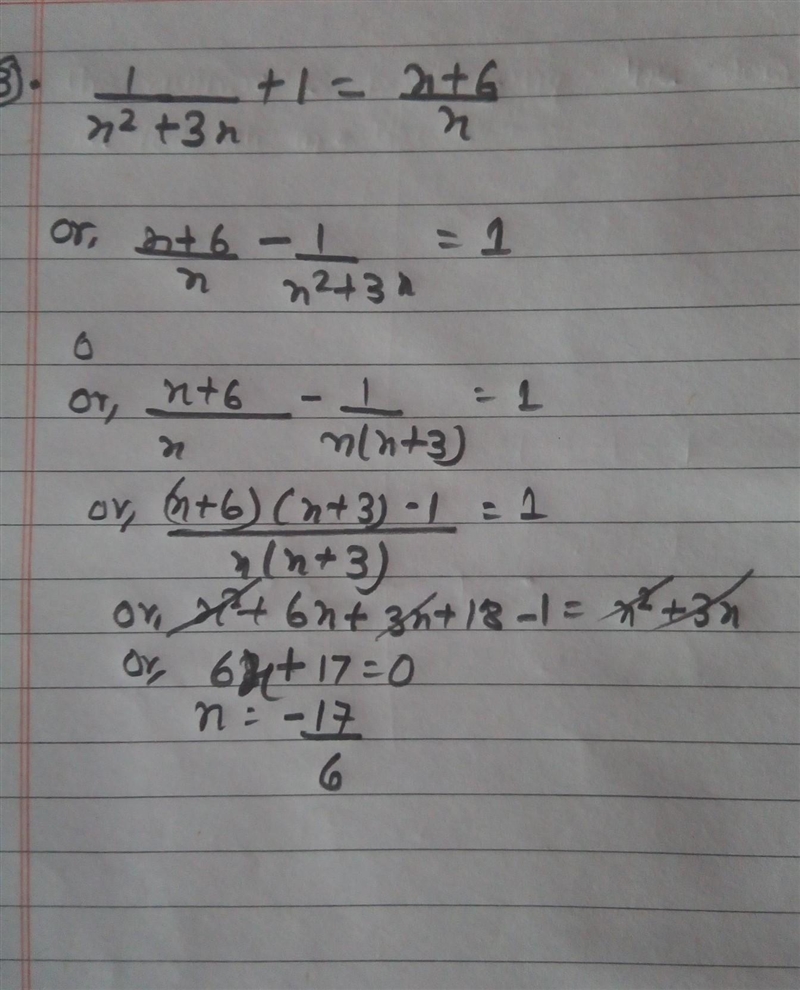 3). 1/(x² + 3x) + 1 = (x+6)/x
or, (x+6)/x - 1/(x²+3x) = 1
o
or, (x+6)/x - 1/(x(x+3)) = 1
or, ((x+6)(x+3) - 1)/(x(x+3)) = 1
or, x² + 6x + 3x + 18 - 1 = x² + 3x
or, 6x + 17 = 0
x = -17/6